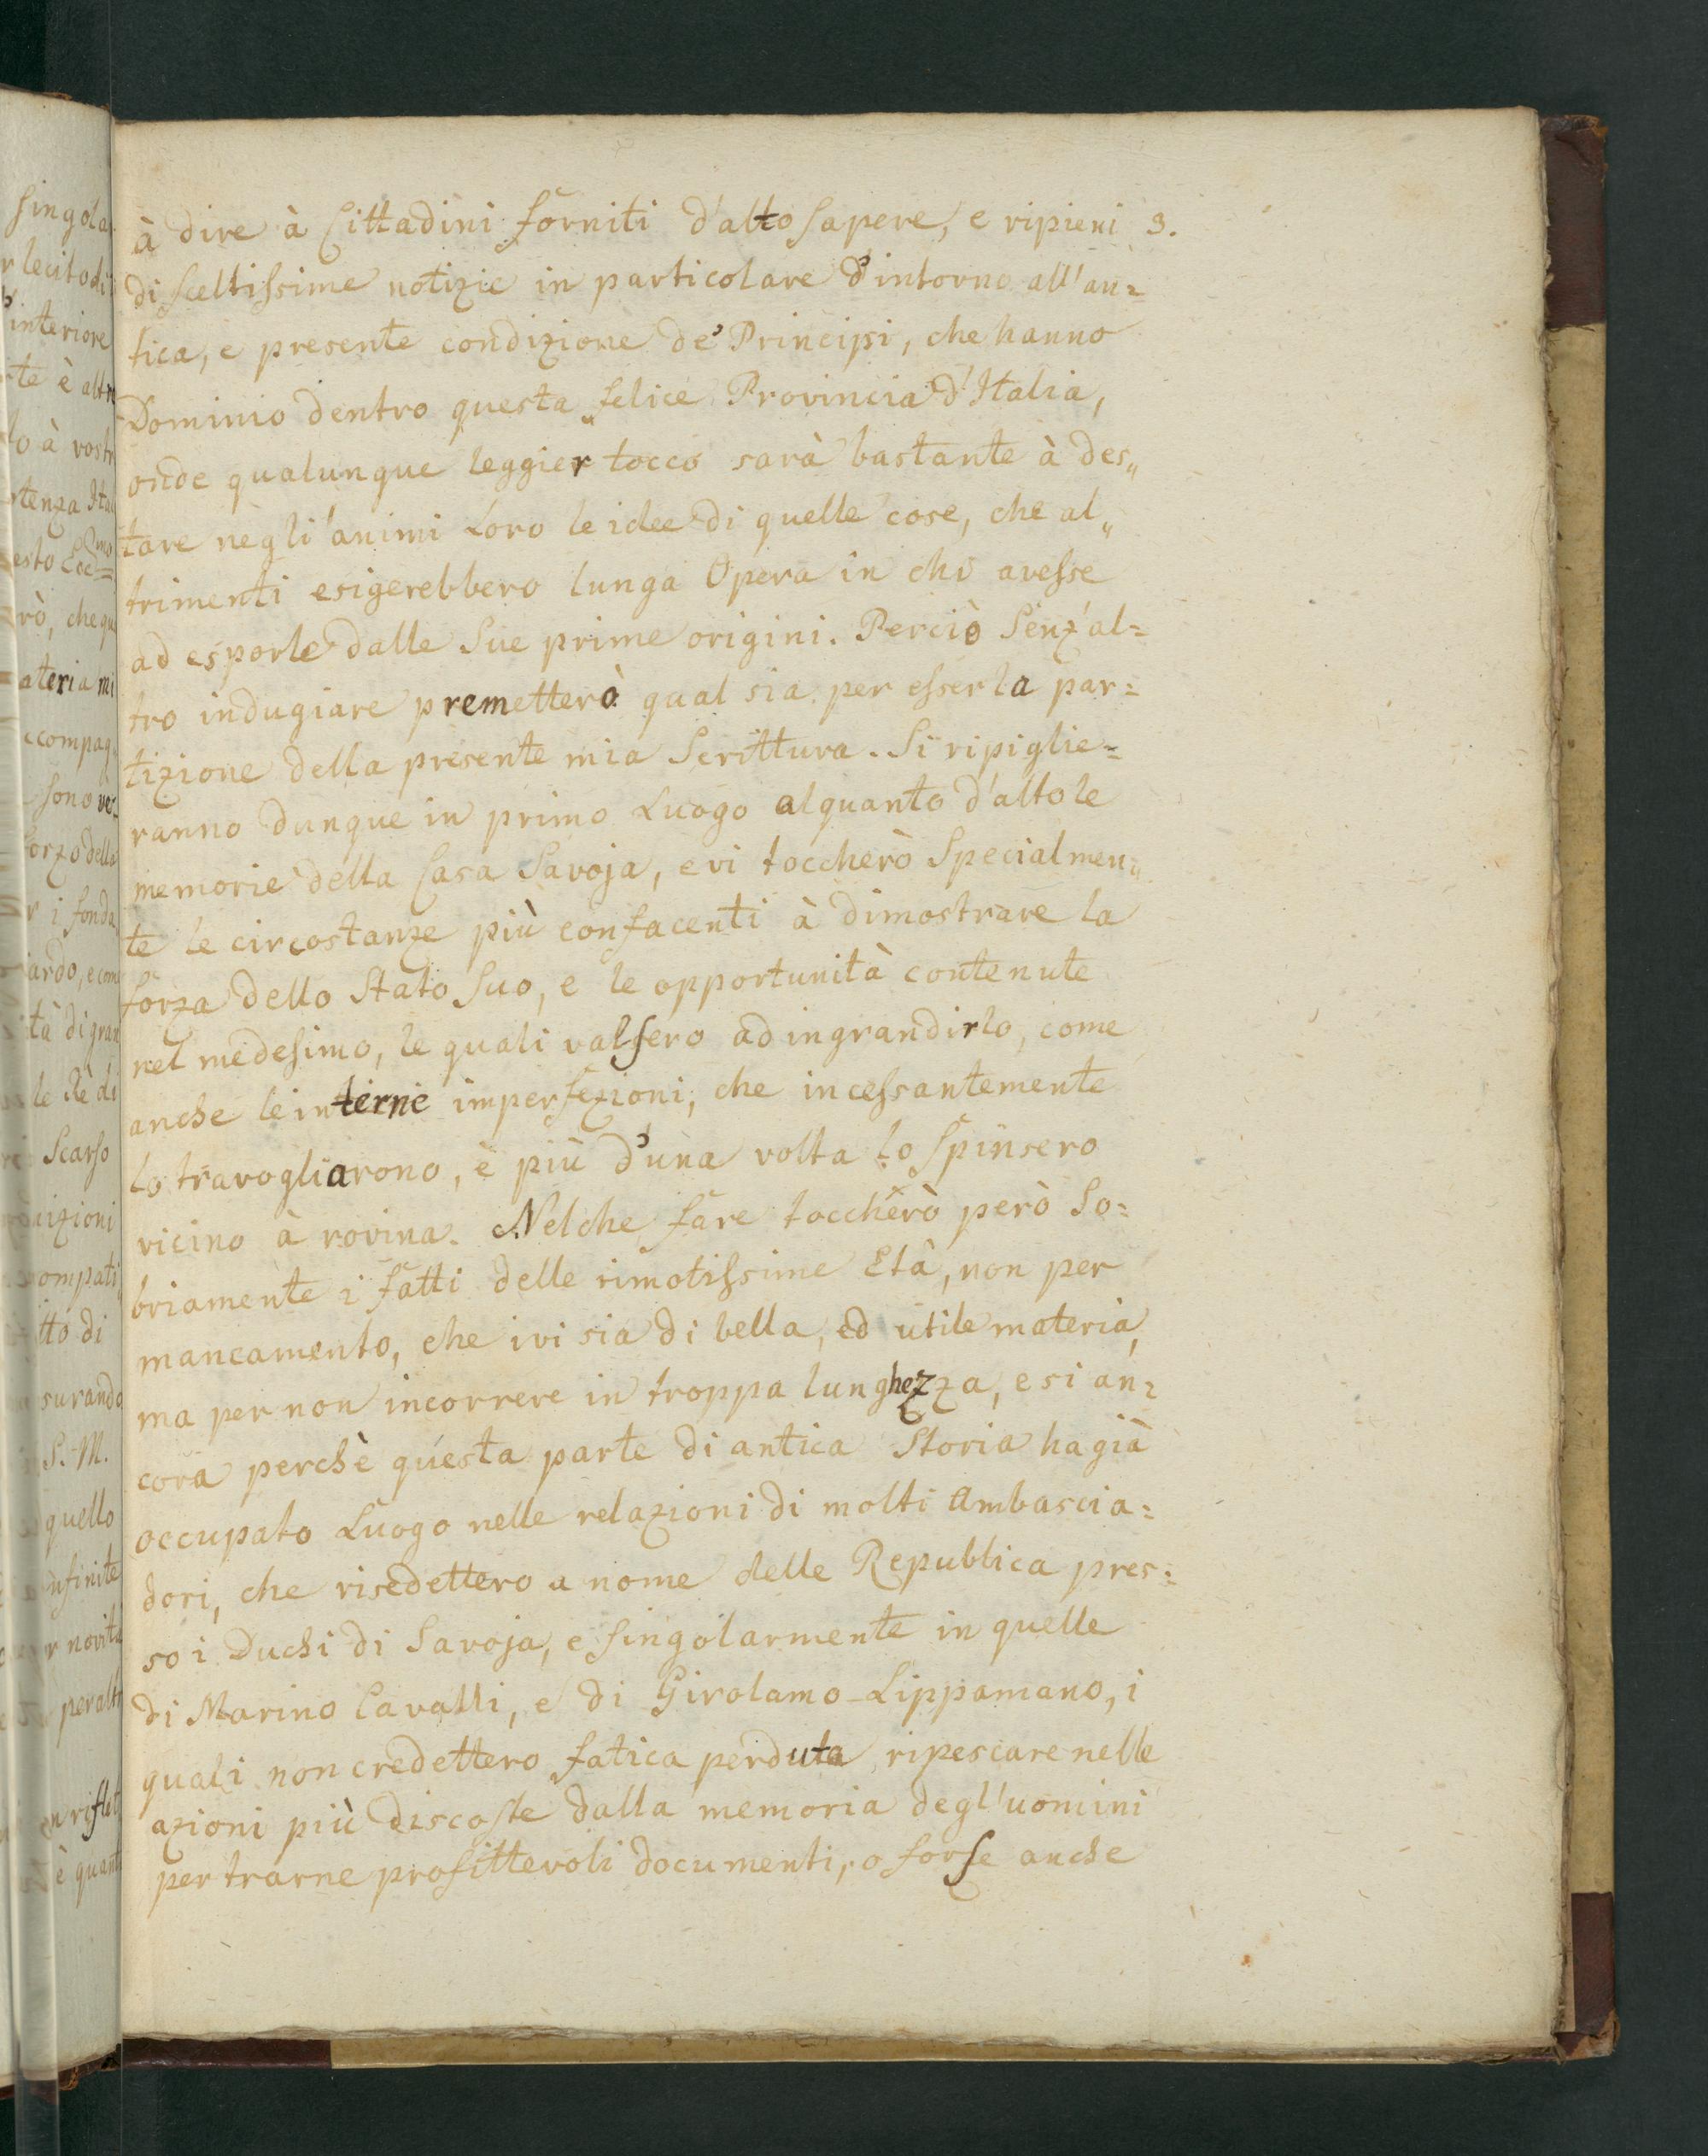 à dire à Cittadini forniti d'alto sapere, e ripieni 3.
di sceltissime notizie in particolare d'intorno all'an=
tica, e presente condizione de' Principi, che hanno
Dominio dentro questa felice Provincia d'Italia,
onde qualunque leggier tocco sarà bastante à des„
tare negli animi Loro le idee di quelle cose, che al„
trimenti esigerebbero lunga Opera in chi avesse
ad esporle dalle Sue prime origini. Perciò Senz'al=
tro indugiare premetterò qual sia per esser la par=
tizione della presente mia Scrittura. Si ripiglie=
ranno dunque in primo Luogo alquanto d'alto le
memorie della Casa Savoja, e vi toccherò Specialmen„
te le circostanze più confacenti à dimostrare la
forza dello Stato Suo, e le opportunità contenute
nel medesimo, le quali valsero ad ingrandirlo, come
anche le interne imperfezioni, che incessantemente
lo travogliarono, e più d'una volta lo Spinsero
vicino à rovina. Nel che fare toccherò però So=
briamente i fatti delle rimotissime Età, non per
mancamento, che ivi sia di bella, ed utile materia,
ma per non incorrere in troppa lunghezza, e si an=
cora perchè questa parte di antica Storia ha già
occupato Luogo nelle relazioni di molti Ambascia=
dori, che risedettero a nome delle Repubblica pres=
so i Duchi di Savoja, e singolarmente in quelle
di Marino Cavalli, e di Girolamo Lippamano, i
quali non credettero fatica perduta ripescare nelle
azioni più discoste dalla memoria degl'uomini
per trarne profittevoli documenti, o forse anche